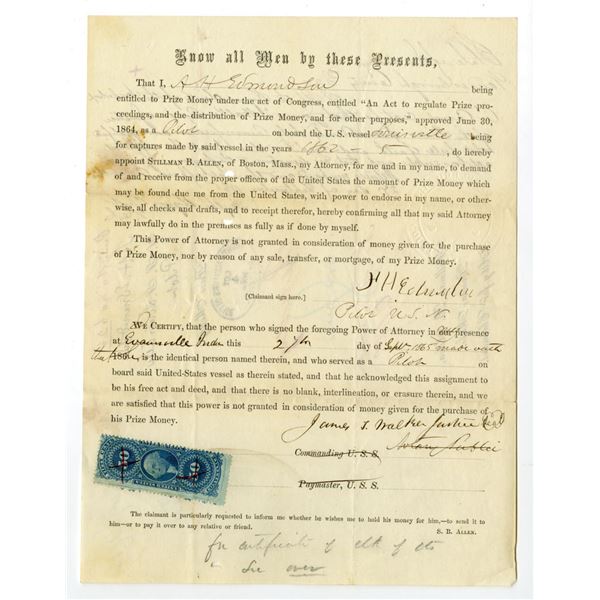 Know all Men by these Presents,
That I, A H Edmondson being
entitled to Prize Money under the act of Congress, entitled "An Act to regulate Prize pro-
ceedings, and the distribution of Prize Money, and for other purposes," approved June 30,
1864, as a Pilot on board the U. S. vessel Louisville being
for captures made by said vessel in the years 1862 - 5, do hereby
appoint STILLMAN B. ALLEN, of Boston, Mass., my Attorney, for me and in my name, to demand
of and receive from the proper officers of the United States the amount of Prize Money which
may be found due me from the United States, with power to endorse in my name, or other-
wise, all checks and drafts, and to receipt therefor, hereby confirming all that my said Attorney
may lawfully do in the premises as fully as if done by myself.
This Power of Attorney is not granted in consideration of money given for the purchase
of Prize Money, nor by reason of any sale, transfer, or mortgage, of my Prize Money.
H Edmondson
[Claimant sign here.]
Pilot U. S. N.
WE CERTIFY, that the person who signed the foregoing Power of Attorney in our presence
at Evansville Inda this 27th day of Sept 1865 made oath
that he is the identical person named therein, and who served as a Pilot on
board said United-States vessel as therein stated, and that he acknowledged this assignment to
be his free act and deed, and that there is no blank, interlineation, or erasure therein, and we
are satisfied that this power is not granted in consideration of money given for the purchase of
his Prize Money.
James S. Walker Justice
Notary Public
Commanding U. S. S.
Paymaster, U. S. S.
The claimant is particularly requested to inform me whether he wishes me to hold his money for him,—to send it to
him—or to pay it over to any relative or friend.
S. B. ALLEN.
for certificate of clk of cts
see over